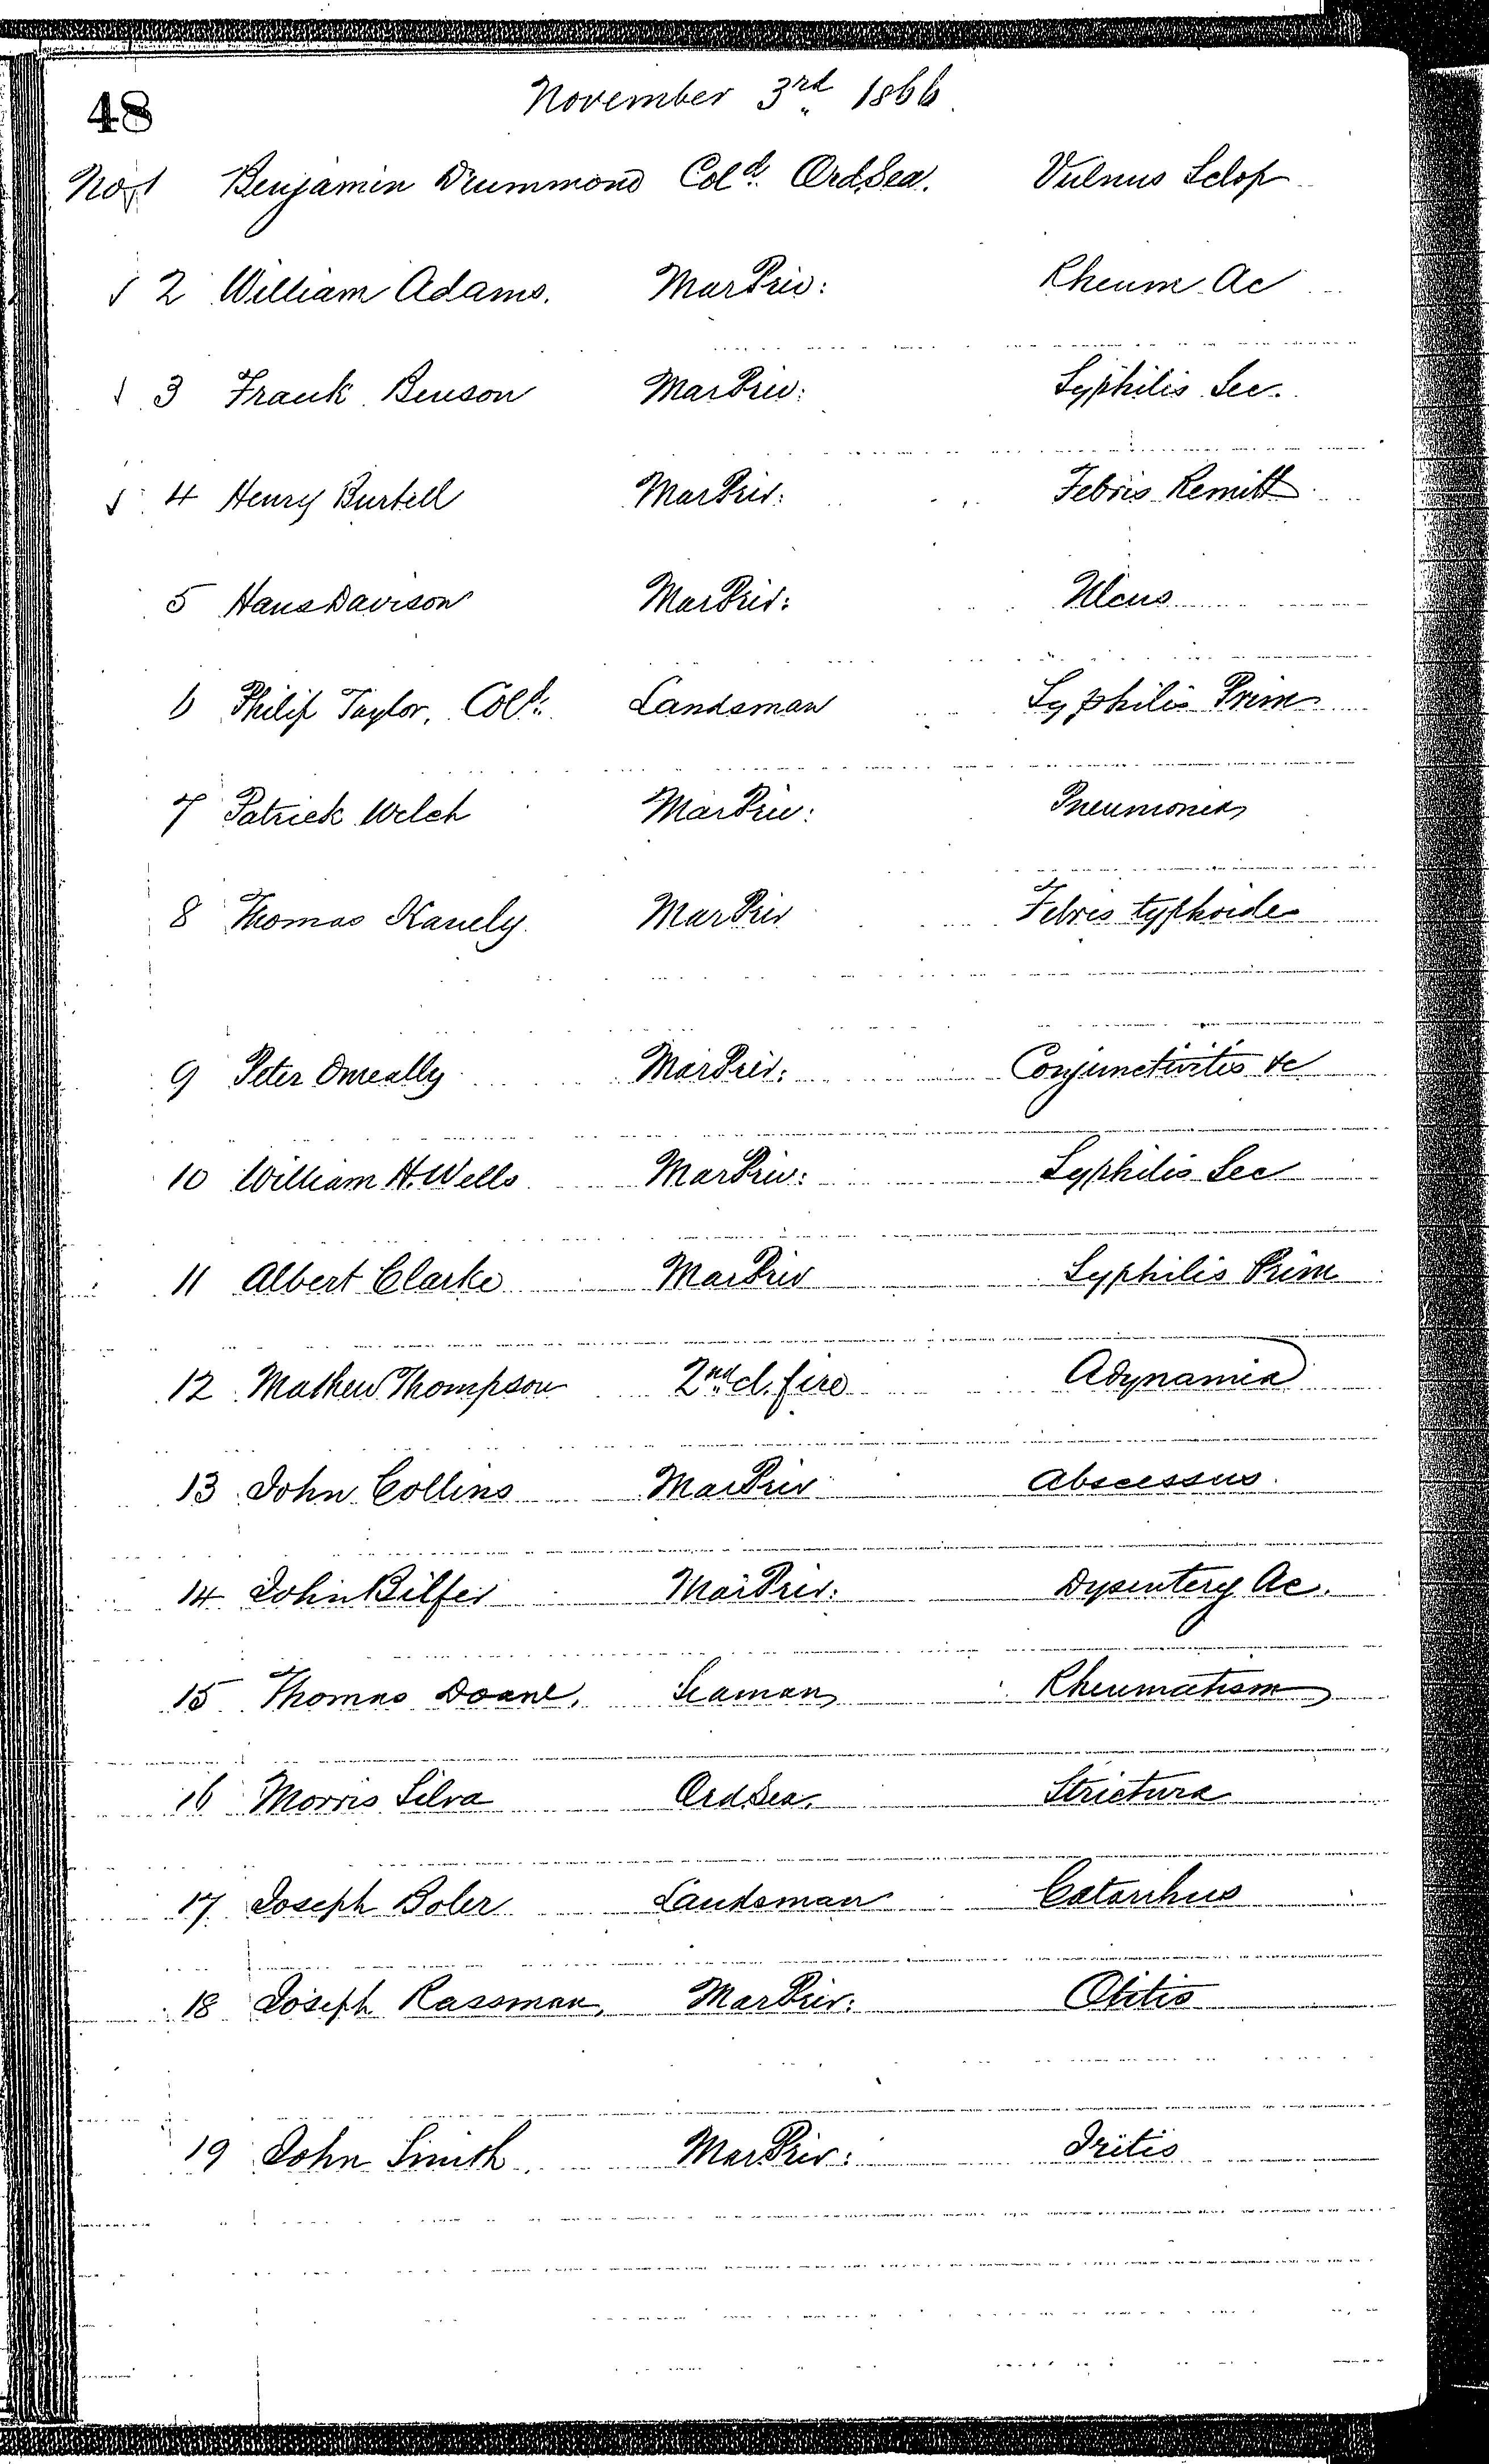 48
November 3rd 1866.
No 1 Benjamin Drummond Cold. Ord.Sea. Vulnus Sclop
2 William Adams. Mar Priv: Rheum Ac
3 Frank Benson Mar Priv: Syphilis Sec.
4 Henry Burtell Mar Priv: Febris Remitt
5 Hans Davison Mar Priv: Ulcus
6 Philip Taylor, Cold. Landsman Syphilis Prim
7 Patrick Welch Mar Priv: Pneumonia
8 Thomas Kanely Mar Priv Febris typhoides
9 Peter Omeally Mar Priv: Conjunctivitis &c
10 William H. Wells Mar Priv: Syphilis Sec
11 Albert Clarke Mar Priv Syphilis Prim
12 Mathew Thompson 2nd cl. fire Adynamia
13 John Collins Mar Priv Abscessus.
14 John Bilfer Mar Priv: Dysentery Ac.
15 Thomas Doane, Seaman Rheumatism
16 Morris Silva Ord.Sea. Strictura
17 Joseph Boler Landsman Catarrhus
18 Joseph Rassman, Mar Priv: Otitis
19 John Smith. Mar Priv: Iritis